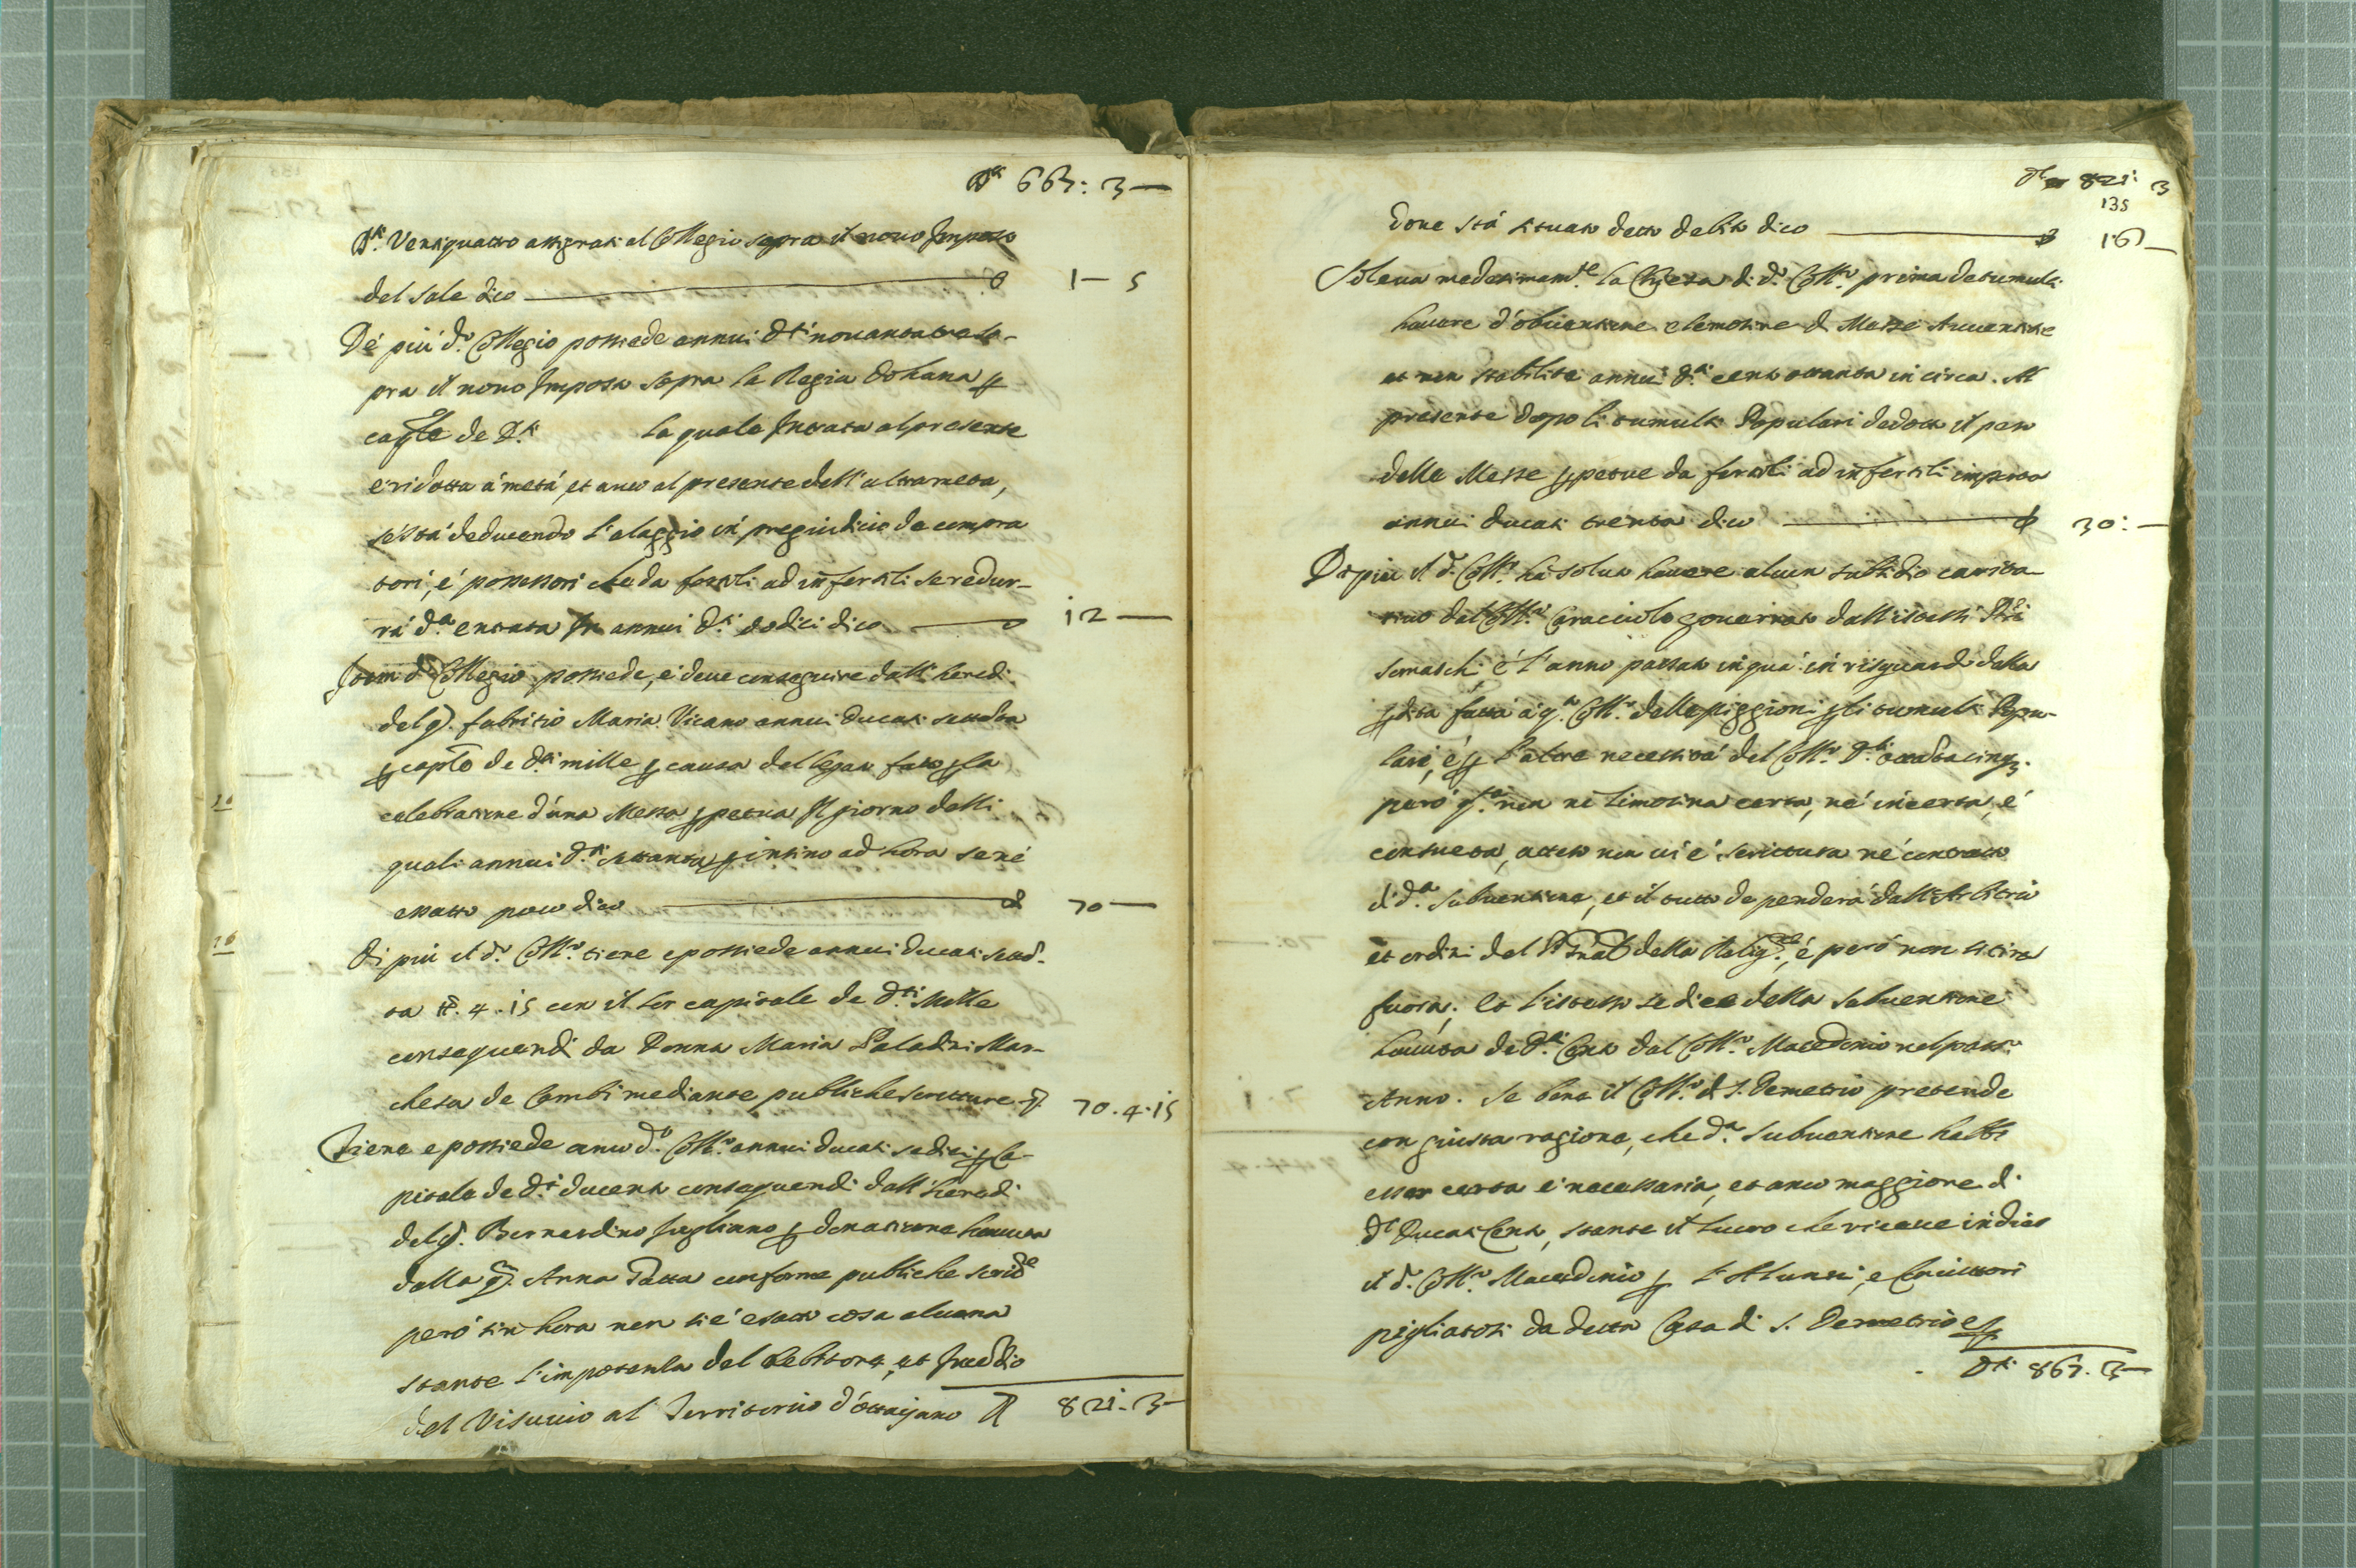 D.ti 667: 3 —
D.ti Ventiquattro assignati al Collegio sopra il novo Imposto
del sale dico — 1 — 5
De più d.o Collegio possiede annui d.ti novantatre so-
pra il novo Imposto sopra la Regia Dohana p
cap.le de d.ti la quale Intrata al presente
è ridotta à metà, et anco al presente dell'altra metà,
se stà deducendo l'alaggio in pregiudicio de compra
tori, e possessori che da fertili ad infertili se redur-
rà d.a entrata In annui d.ti dodici dico — 12 —
Item d.o Collegio possiede, e deve conseguire dall'heredi
del q. Fabritio Maria Vicano annui ducati settanta
p cap.le de d.ti mille p causa del legato fatto p la
celebratione d'una Messa p petua Il giorno delli
quali annui d.ti settanta p insino ad hora se nè
esatto poco dico — 70 —
Di più il d.o Coll.o tiene e possiede annui ducati settan-
ta tt. 4. 15 con il lor capitale de d.ti Mille
conseguendi da Donna Maria Paladini Mar-
chesa de Campi mediante publiche scritture — 70. 4. 15
Tiene e possiede anco d.o Coll.o annui ducati sedici p Ca-
pitale de d.ti ducento conseguendi dall'heredi
del q. Bernardino Iugliano p donatione havuta
dalla q. Anna Tassa conforme publiche scritt.e
però sin hora non si è esatto cosa alcuna
stante l'impotenza del debitore, et Incendio
del Visuvio al Territorio d'ottaijano 821. 3 —
D.ti 821: 3
135
dove stà situato detto debito dico — 16 —
Soleva medesimam.te la Chiesa di d.o Coll.o prima de tumulti
havere d'obventione elemosine d Messe Avventitie
et non stabilite annui d.ti cento ottanta in circa. Al
presente dopo li tumulti Populari dedotto il peso
delle Messe p petue da fertili ad infertili importa
annui ducati trenta dico — 30: —
Di più il d.o Coll.o hà soluto havere alcun subsidio carita
tivo dal Coll.o Caracciolo governato dall'istessi P.ri
Somaschi è l'anno passato in quà in risguardo della
p dita fatta à q.o Coll.o delle piggioni p li tumulti Popu-
lari, è p l'altre necessità del Coll.o d.ti ottantacinq.
però q.a non ne limosina certa, nè incerta, è
consueta, atteso non ci è scrittura nè contratto
di d.a subventione, et il tutto dependerà dall'Arbitrio
et ordini del P. Gnal della Relig.e, è però non si tira
fuora; Et l'istesso se dice della subventione
havuta de d.ti Cento dal Coll.o Macedonio nel pass.o
Anno. Se bene il Coll.o di S. Demetrio pretende
con giusta ragione, che d.a subventione habbi
esser certa e necessaria, et anco maggiore di
d.i Ducati Cento, stante il lucro che riceve in dies
il d.o Coll.o Macedonio p l'Alunni, e Convittori
pigliatosi da detta Casa di S. Demetrio
D.ti 867. 3 —